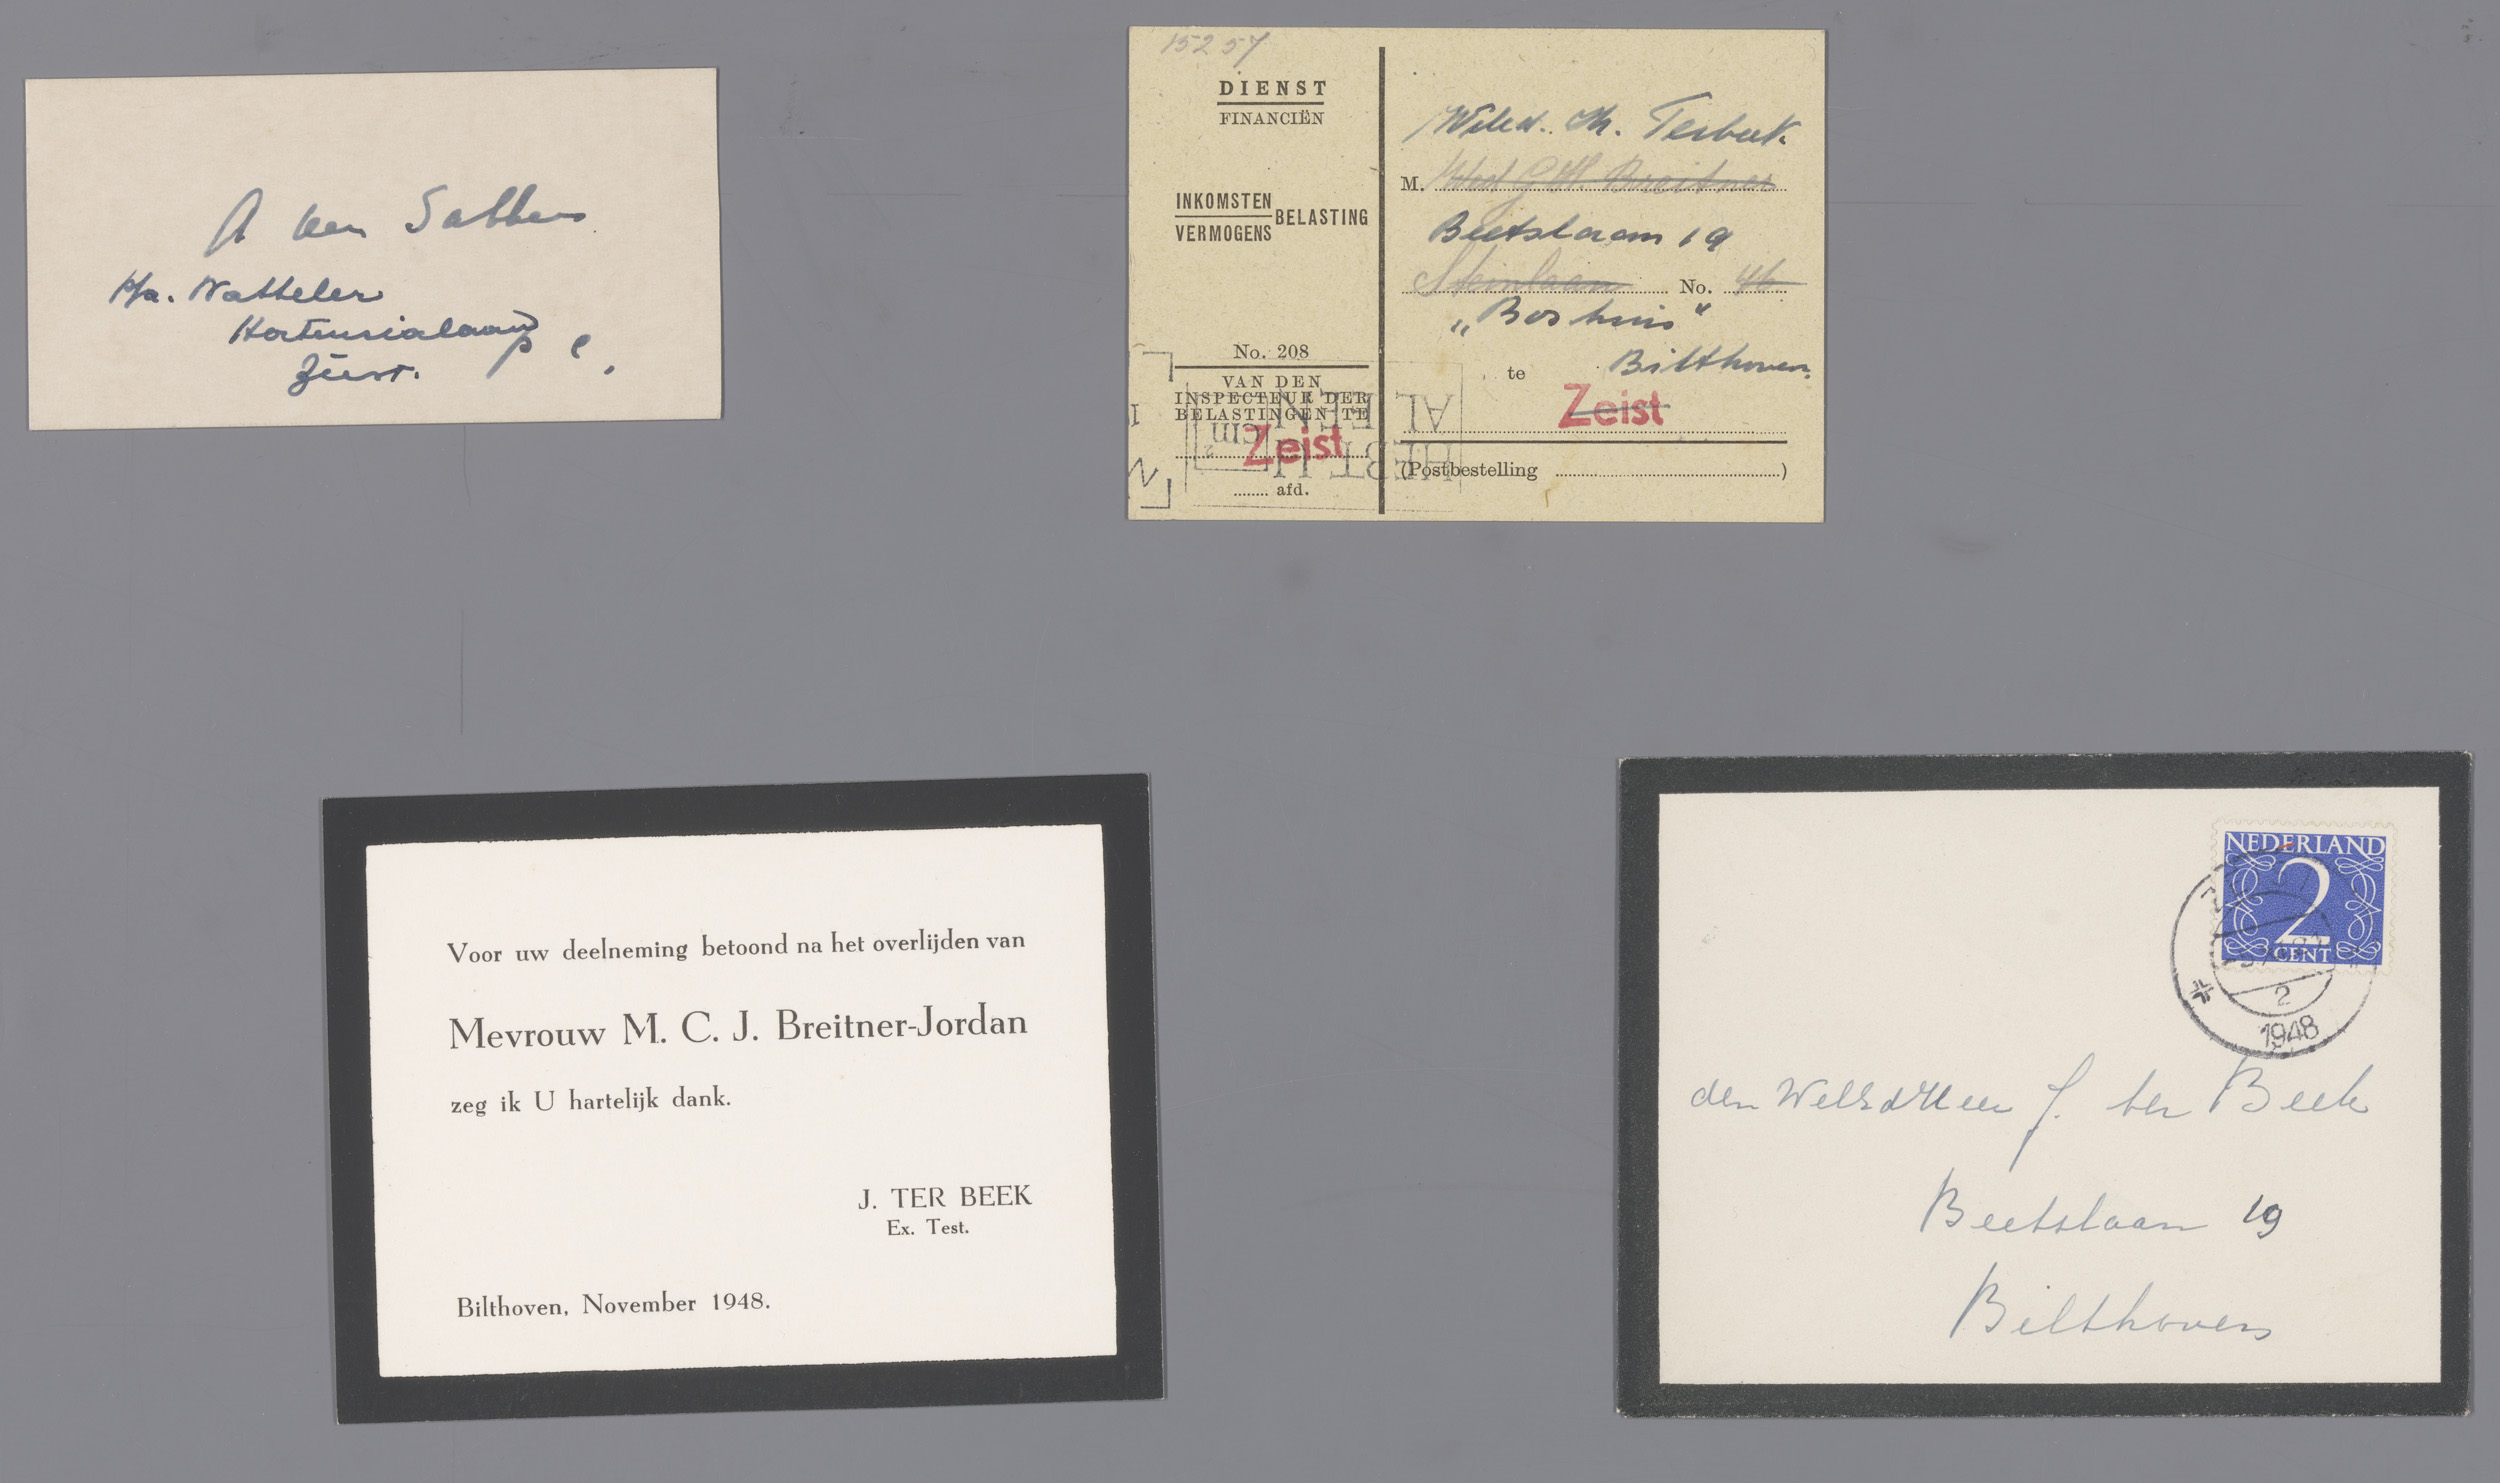 A van Sabben
p/a. Natteler
Hortensialaan
Zeist.
15257
DIENST
FINANCIËN
INKOMSTEN
VERMOGENS
BELASTING
No. 208
VAN DEN
INSPECTEUR DER
BELASTINGEN TE
Zeist
afd.
Terbeek
M. Wed G H. Breitner
Beetslaan 19
Steinlaan No. 46
„Boshuis"
te Bilthoven.
Zeist
(Postbestelling )
Voor uw deelneming betoond na het overlijden van
Mevrouw M. C. J. Breitner-Jordan
zeg ik U hartelijk dank.
J. TER BEEK
Ex. Test.
Bilthoven, November 1948.
NEDERLAND
2
CENT
2
1948
den WelEdHeer J. ter Beek
Beetslaan 19
Bilthoven